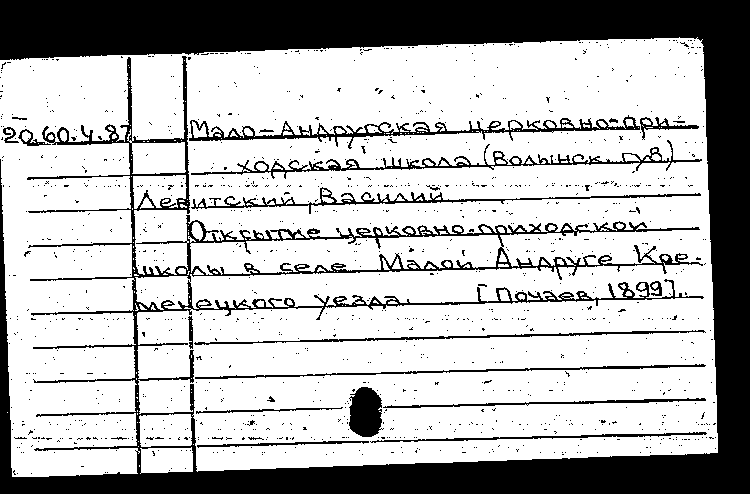 20.60.4.87 Мало-Андругская церковно-при-
ходская школа. (Волынск. губ.)
Левитский, Василий
Открытие церковно-приходской
школы в селе Малой Андруге, Кре-
менецкого уезда. [Почаев, 1899].